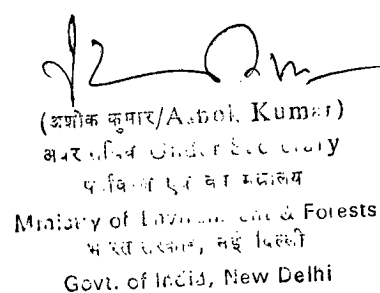 (अशोक कुमार/Ashok Kumar)
अवर सचिव Under Secretary
एवं वन मंत्रालय
Ministry of Environment & Forests
भारत सरकार, नई दिल्ली
Govt. of India, New Delhi